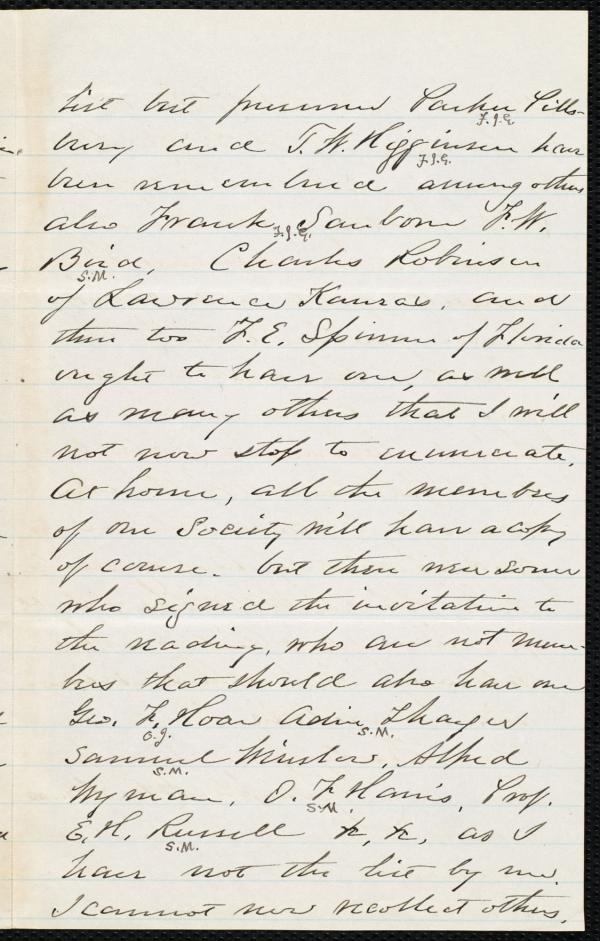 list but presume Parker Pills-
F.J.G.
bury and T. W. Higginson have
F.J.G.
been remembered among others
also Frank Sanborn F. W.
F.J.G.
Bird, Charles Robinson
S.M.
of Lawrence Kansas, and
then too F. E. Spinner of Florida
ought to have one, as well
as many others that I will
not now stop to enumerate.
At home, all the members
of our Society will have a copy
of course. but there were some
who signed the invitation to
the reading, who are not mem-
bers that should also have one
Geo. F. Hoar Adin Thayer
S.M.
Samuel Winslow, Alfred
S.M.
Wyman, O. F. Harris, Prof.
S.M.
E. H. Russell &c, &c, as I
S.M.
have not the list by me.
I cannot now recollect others.